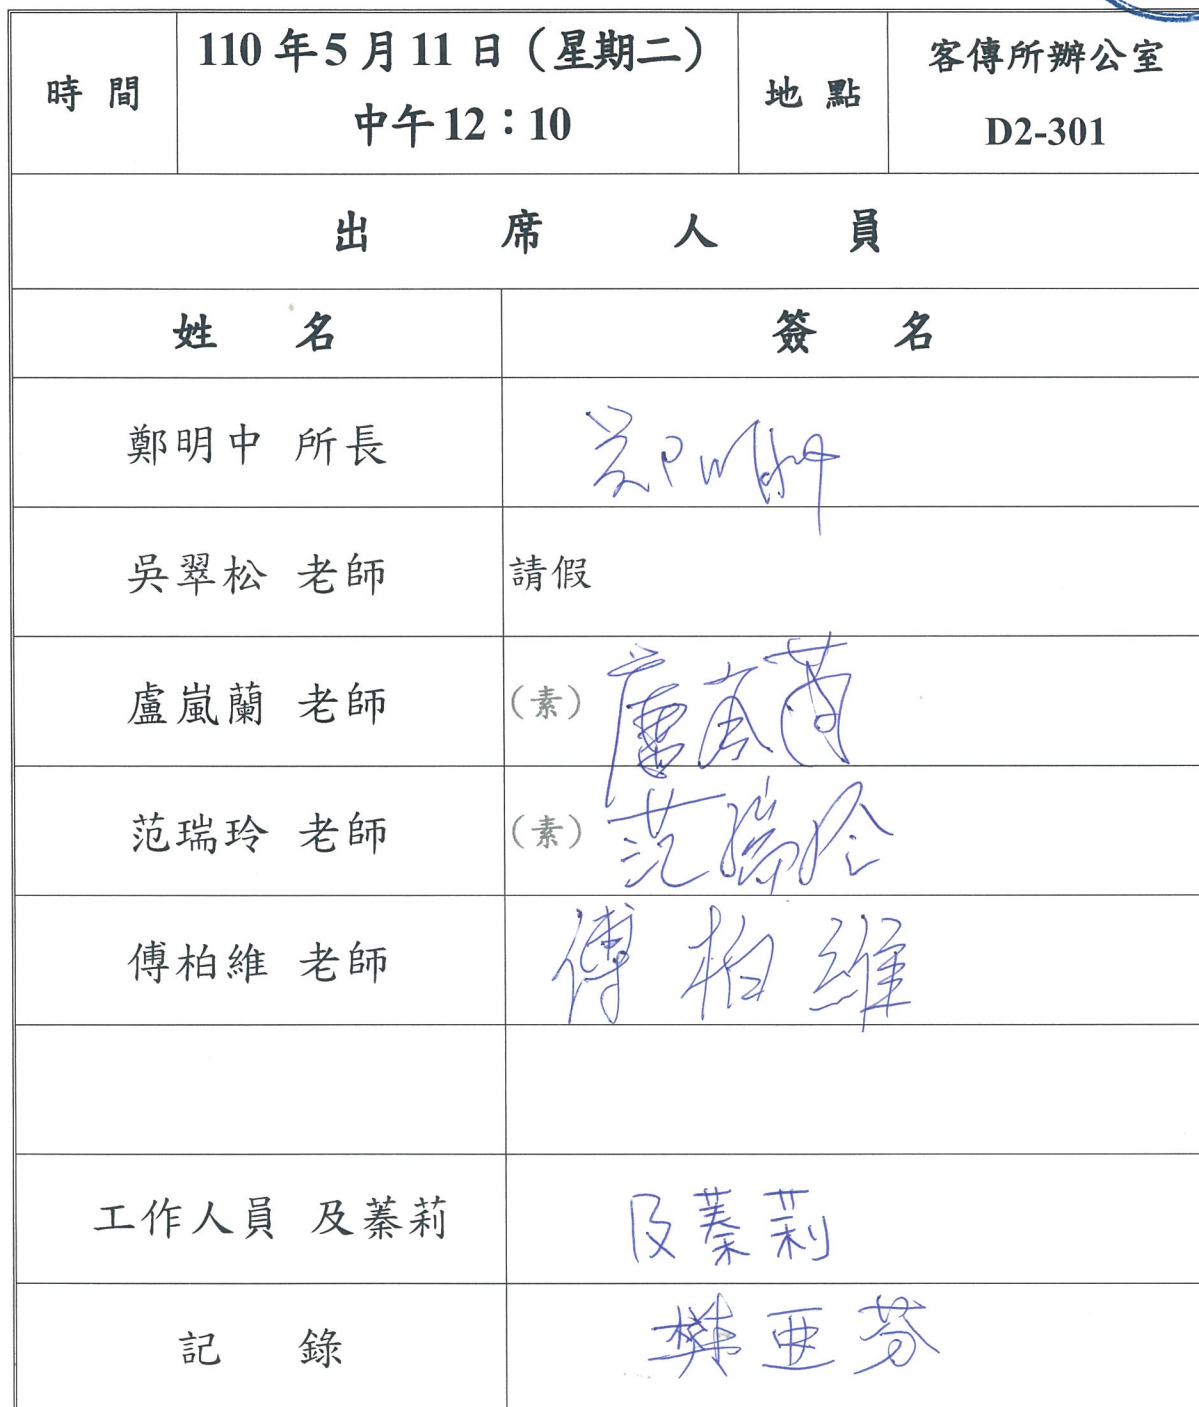 時 間
110 年 5 月 11 日（星期二）
中午 12：10
地 點
客傳所辦公室
D2-301
出 席 人 員
姓 名
簽 名
鄭明中 所長
鄭明中
吳翠松 老師
請假
盧嵐蘭 老師
（素）
盧嵐蘭
范瑞玲 老師
（素）
范瑞玲
傅柏維 老師
傅柏維
工作人員 及蓁莉
及蓁莉
記 錄
樊亜芬